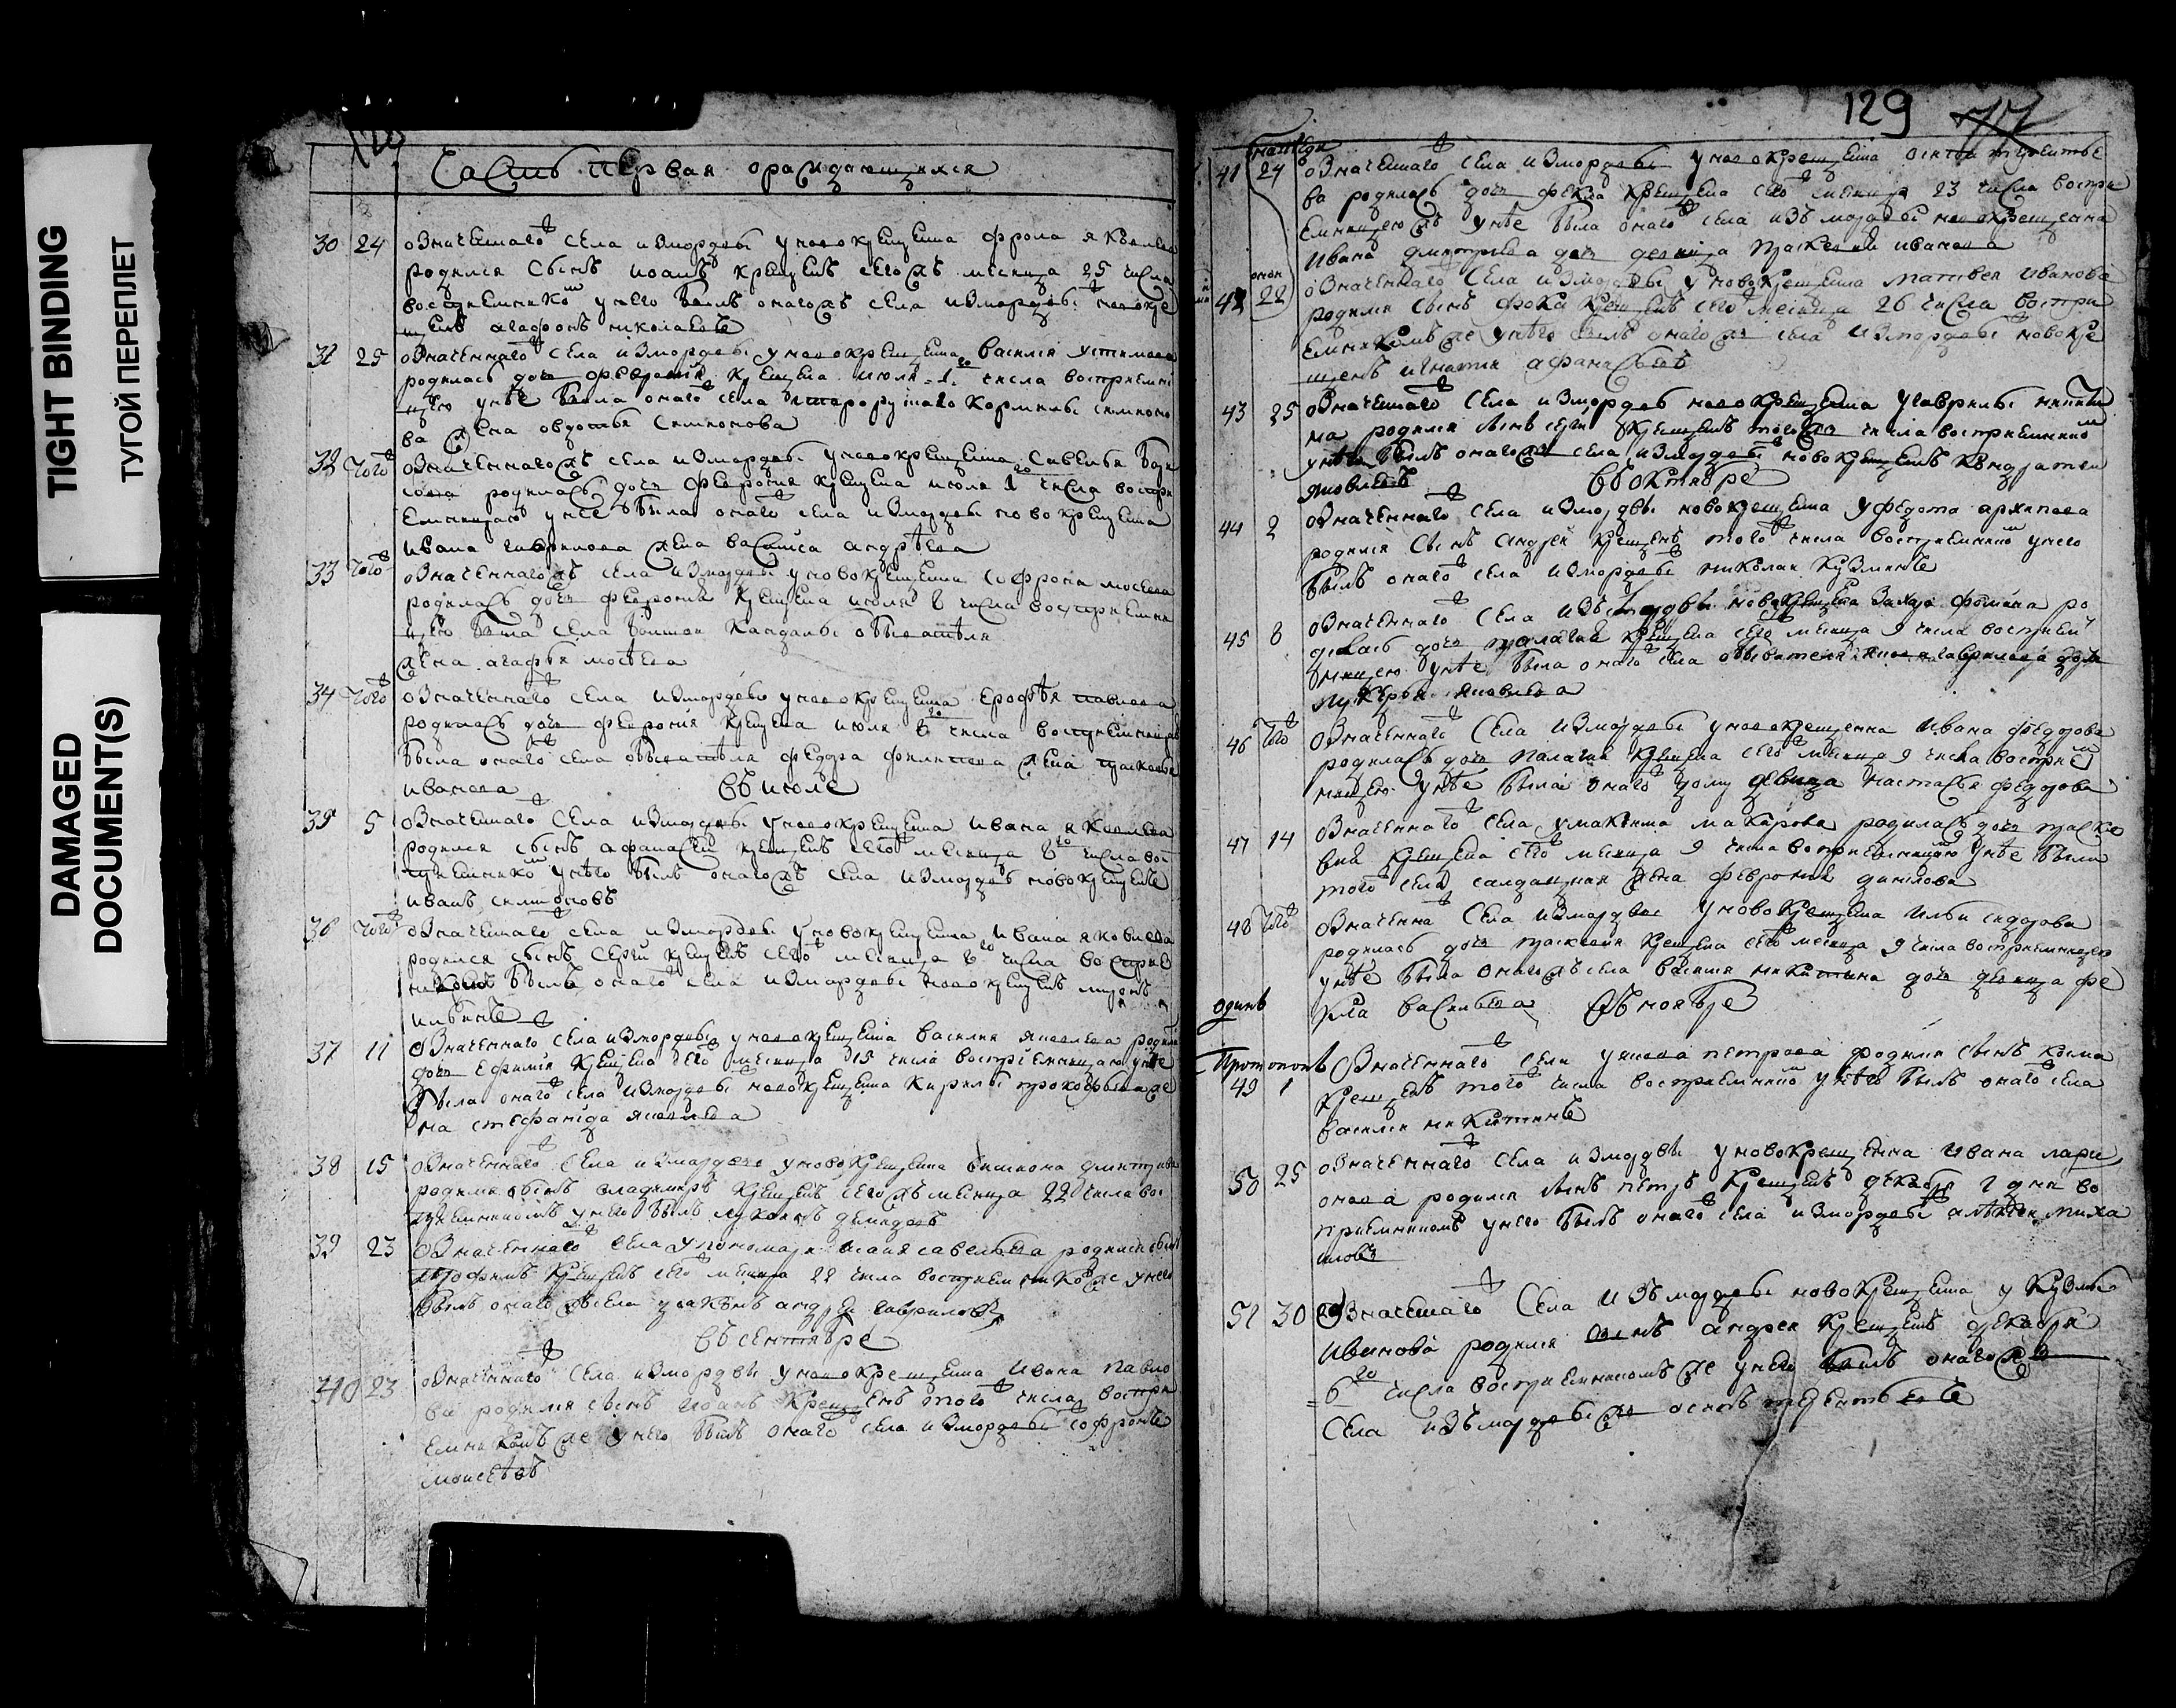 TIGHT BINDING
ТУГОЙ ПЕРЕПЛЕТ
DAMAGED
DOCUMENT(S)
Часть первая ораждающихся
30 24 означеннаго села измордвы уновокрещена фрола яковлева
родился сынъ иоанъ крещенъ сегожъ месяца 25 числа
восприемником унего былъ онагожъ села измордвы новокре
щенъ агафонъ николаевъ
31 25 означеннаго села измордвы уновокрещена василия устимова
родилась дочь феврония крещена июля 1 числа восприемни
цею унѣе была онаго села
ва жена овдотья семионова
32 того означеннагожъ села измордвы уновокрещена савелья
родилась дочь феврония крещена июля числа воспри
емницею унее была онаго села измордвы новокрещена
ивана гаврилова жена василиса андрѣева
33 того означеннагожъ села измордвы уновокрещена софрона мосеева
родилась дочь феврония крещена июля 6 числа восприемни
цею была села кандалы обывателя
жена агафья мосѣева
34 того означеннаго села измордвы уновокрещена ерофѣя павлова
родилась дочь феврония крещена июля 6 числа восприемницею
была онаго села обывателя федора филипова жена прасковья
иванова въ июле
35 5 означеннаго села измордвы уновокрещена ивана яковлева
родился сынъ афанасей крещенъ сего месяца 6 числа вос
приемником унѣго былъ онагожъ села измордвы новокрещенъ
иванъ семионовъ
36 того означеннаго села измордвы уновокрещена ивана яковлева
родился сынъ сергй крещенъ сего месяца 6 числа восприе
былъ онаго села измордвы новокрещенъ миронъ
ильинъ
37 11 означеннаго села измордвы уновокрещена василия яковлева роди
дочь ефимия крещена сего месяца 15 числа восприемницею унѣе
была онаго села измордвы новокрещена кирилы прокофьева же
на стефанида яковлева
38 15 означеннаго села измордвы уновокрещена дмитриева
родился сынъ владимиръ крещенъ сегожъ месяца 22 числа вос
приемникомъ унего былъ лукоянъ демидовъ
39 23 означеннаго села упономаря савельева родился сынъ
трофимъ крещенъ сего месяца 22 числа восприемникомже унего
былъ онаго села дьяконъ андрей гавриловъ
въ сентябре
40 23 означеннаго села измордвы уновокрещена ивана павло
ва родился сынъ иоанъ крещенъ того числа воспри
емникомъ же унего былъ онаго села измордвы софронъ
моисѣевъ
129 77
41 24 означеннаго села измордвы уновокрещена осипа терентье
ва родилась дочь фекла крещена сего месяца 23 числа воспри
емницеюжъ унѣе была онаго села изъ мордвы новокрещена
ивана дмитриева дочь девица прасковья иванова
42 22 означеннаго села измордвы уновокрещена матвея иванова
родился сынъ фока крещенъ сего месяца 26 числа воспри
емникомъже унѣго былъ онагожъ села измордвы новокре
щенъ игнатия афанасьевъ
43 25 означеннаго села измордвы новокрещена угаврилы никити
на родился сынъ сергй крещенъ тогожъ числа восприемником
унѣго былъ онагожъ села измордвы новокрещенъ кондратеи
яковлевъ въ октябре
44 2 означеннаго села измордвы новокрещена уфедота архипова
родился сынъ андрей крещенъ того числа восприемником унего
былъ онаго села измордвы николаи кузминъ
45 8 означеннаго села изъ мордвы новокрещена захара фомина ро
дилась дочь пелагия крещена сего месяца 9 числа восприем
ницею унѣе была онаго села обывателя якова гаврилова дочь
лукерья яковлева
46 того означеннаго села измордвы уновокрещенна ивана федорова
родилась дочь палагия крещена сего месяца 9 числа восприем
ницею унѣе была онаго дому девица настасья федорова
47 14 означеннаго села умаксима макарова родилась дочь праско
вия крещена сего месяца 9 числа восприемницею унѣе была
того села салдацкая жена феврония данилова
48 того означенна села измордвы уновокрещена ильи сидорова
родилась дочь прасковия крещена сего месяца 9 числа восприемницею
унѣе была онагожъ села василия никитина дочь девица фе
кла васильева въ ноябре
одинъ
протопопъ
49 1 означеннаго села уякова петрова родился сынъ козма
крещенъ того числа восприемником унѣго былъ онаго села
василеи никитинъ
50 25 означеннаго села измордвы уновокрещена ивана лари
онова родился сынъ петръ крещенъ декабря 2 дня во
приемникомъ унего былъ онаго села измордвы алѣксеи миха
иловъ
51 30 означеннаго села изъ мордвы новокрещена укузмы
иванова родился сынъ андреи крещенъ декабря
6 числа восприемникомъже унего былъ онагожъ
села изъ мордвы осипъ терентьевъ